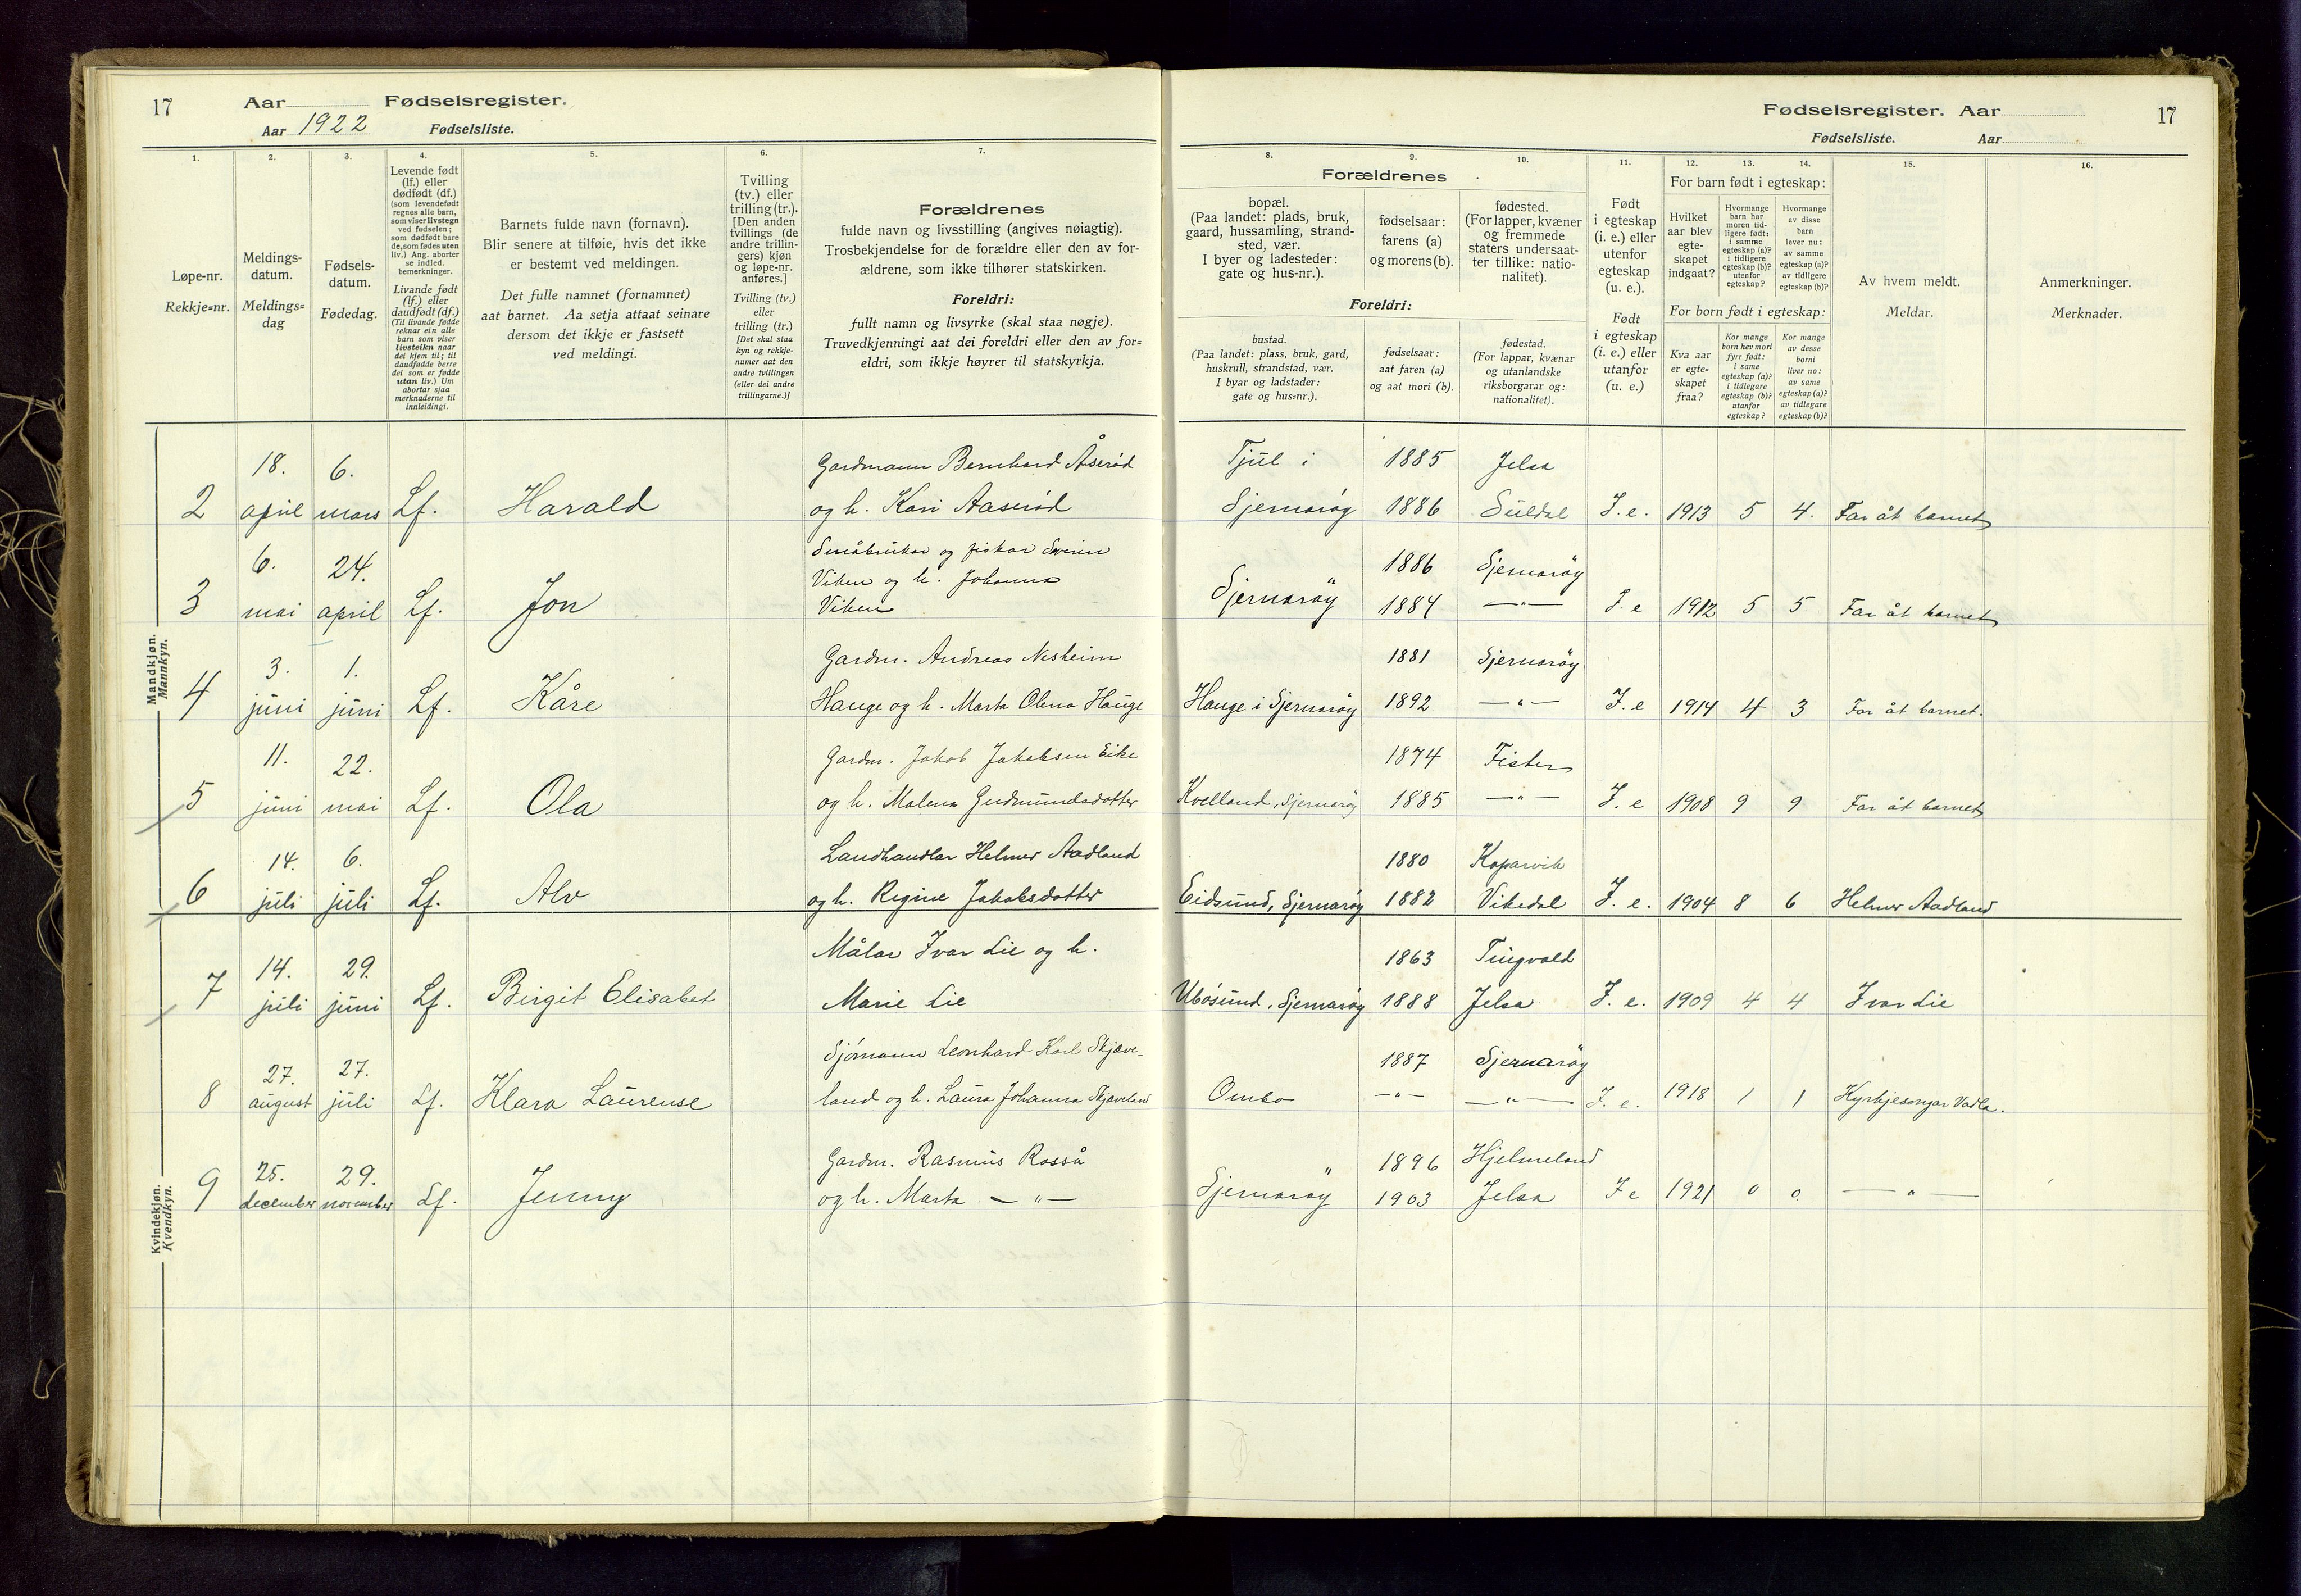 17 Aar Fødselsregister.
Aar 1922 Fødselsliste.
1.
Løpe-nr.
Rekkje=nr.
2.
Meldings-
datum.
Meldings=
dag
3.
Fødsels-
datum.
Fødedag.
4.
Levende født
(lf.) eller
dødfødt (df.)
(som levendefødt
regnes alle barn,
som viser livstegn
ved fødselen;
som dødfødt bare
de, som fødes uten
liv.) Ang. aborter
se indled.
bemerkninger.
Livande født
(lf.) eller
daudfødt (df.)
(Til livande fødde
reknar ein alle
barn som viser
livsteikn naar
dei kjem til; til
daudfødde berre
dei som er fødde
utan liv.) Um
abortar sjaa
merknaderne til
innleidingi.
5.
Barnets fulde navn (fornavn).
Blir senere at tilføie, hvis det ikke
er bestemt ved meldingen.
Det fulle namnet (fornamnet)
aat barnet. Aa setja attaat seinare
dersom det ikkje er fastsett
ved meldingi.
6.
Tvilling
(tv.) eller
trilling (tr.).
[Den anden
tvillings (de
andre trillin-
gers) kjøn
og løpe-nr.
anføres.]
Tvilling (tv.)
eller
trilling (tr.)
[Det skal staa
kyn og rekkje-
numer aat den
andre tvillingen
(eller dei andre
trillingarne.)]
7.
Forældrenes
fulde navn og livsstilling (angives nøiagtig).
Trosbekjendelse for de forældre eller den av for-
ældrene, som ikke tilhører statskirken.
Foreldri:
fullt namn og livsyrke (skal staa nøgje).
Truvedkjenningi aat dei foreldri eller den av for=
eldri, som ikkje høyrer til statskyrkja.
Fødselsregister. Aar 17
Fødselsliste. Aar
8.
Forældrenes
bopæl.
(Paa landet: plads, bruk,
gaard, hussamling, strand-
sted, vær.
I byer og ladesteder:
gate og hus-nr.).
Foreldri:
bustad.
(Paa landet: plass, bruk, gard,
huskrull, strandstad, vær.
I byar og ladstader:
gate og hus=nr.).
9.
fødselsaar:
farens (a)
og morens (b).
fødselsaar:
aat faren (a)
og aat mori (b).
10.
fødested.
(For lapper, kvæner
og fremmede
staters undersaat-
ter tillike: natio-
nalitet).
fødestad.
(For lappar, kvænar
og utanlandske
riksborgarar og:
nationalitet).
11.
Født
i egteskap
(i. e.) eller
utenfor
egteskap
(u. e.).
Født
i egteskap
(i. e.) eller
utanfor
(u. e.)
12. 13. 14.
For barn født i egteskap:
Hvilket
aar blev
egte-
skapet
indgaat?
Hvormange
barn har
moren tid-
ligere født:
i samme
egteskap (a)?
i tidligere
egteskap (b)?
utenfor
egteskap?
Hvormange
av disse
barn
lever nu:
av samme
egteskap (a)?
av tidligere
egteskap (b)?
For born født i egteskap:
Kva aar
er egte=
skapet
fraa?
Kor mange
born hev mori
fyrr født:
i same
egteskap (a)?
i tidlegare
egteskap (b)?
utanfor
egteskap?
Kor mange
av desse
borni
liver no:
av same
egteskap (a)?
av tidlegare
egteskap (b)?
15.
Av hvem meldt.
Meldar.
16.
Anmerkninger.
Merknader.
Mandkjøn.
Mannkyn.
18. 6. Gardmann Bernhard Åserød Tjül i 1885 Jelsa
2 april mars Lf. Harald og h. Kari Aaserød Sjernarøy 1886 Süldal I. e. 1913 5 4. Far åt barnet
Småbrukar og fiskar Sverin
6. 24. Viken og h. Johanna 1886 Sjernarøy
3 mai april Lf. Jon Viken Sjernarøy 1884 —"— I. e 1912 5 5 Far åt barnet
3. 1. Gardm. Andreas Nesheim 1881 Sjernarøy
4 jüni jüni Lf. Kåre Hauge og h. Marta Olena Hauge Hauge i Sjernarøy 1892 —"— I. e 1914 4 3 Far åt barnet.
11. 22. Gardm. Jakob Jakobsen Eike 1874 Fister
5 jüni mai Lf. Ola og h. Malena Gudmündsdotter Kvelland, Sjernarøy 1885 —"— I. e 1908 9 9 Far åt barnet
14. 6. Landhandlar Helmer Aadland 1880 Koparvik
6 jüli jüli Lf. Alv og h. Regine Jakobsdotter Eidsünd, Sjernarøy 1882 Vikedal I. e. 1904 8 6 Helmer Aadland
14. 29. Målar Ivar Lie og h. 1863 Tingvold
7 jüli jüni Lf. Birgit Elisabet Marie Lie Ubøsünd, Sjernarøy 1888 Jelsa I. e. 1909 4 4 Ivar Lie
27. 27. Sjømann Leonhard Karl Skjæve- 1887 Sjernarøy
8 aügust jüli Lf. Klara Laürense land og h. Laüra Johanna Skjæveland Ombo —"— —"— I. e. 1918 1 1 Kyrkjesongar Vadla.
25. 29. Gardm. Rasmüs Rosså 1896 Hjelmeland
9 december november Lf. Jenny og h. Marta —"— Sjernarøy 1903 Jelsa I e 1921 0 0 —"—
Kvindekjøn.
Kvendkyn.